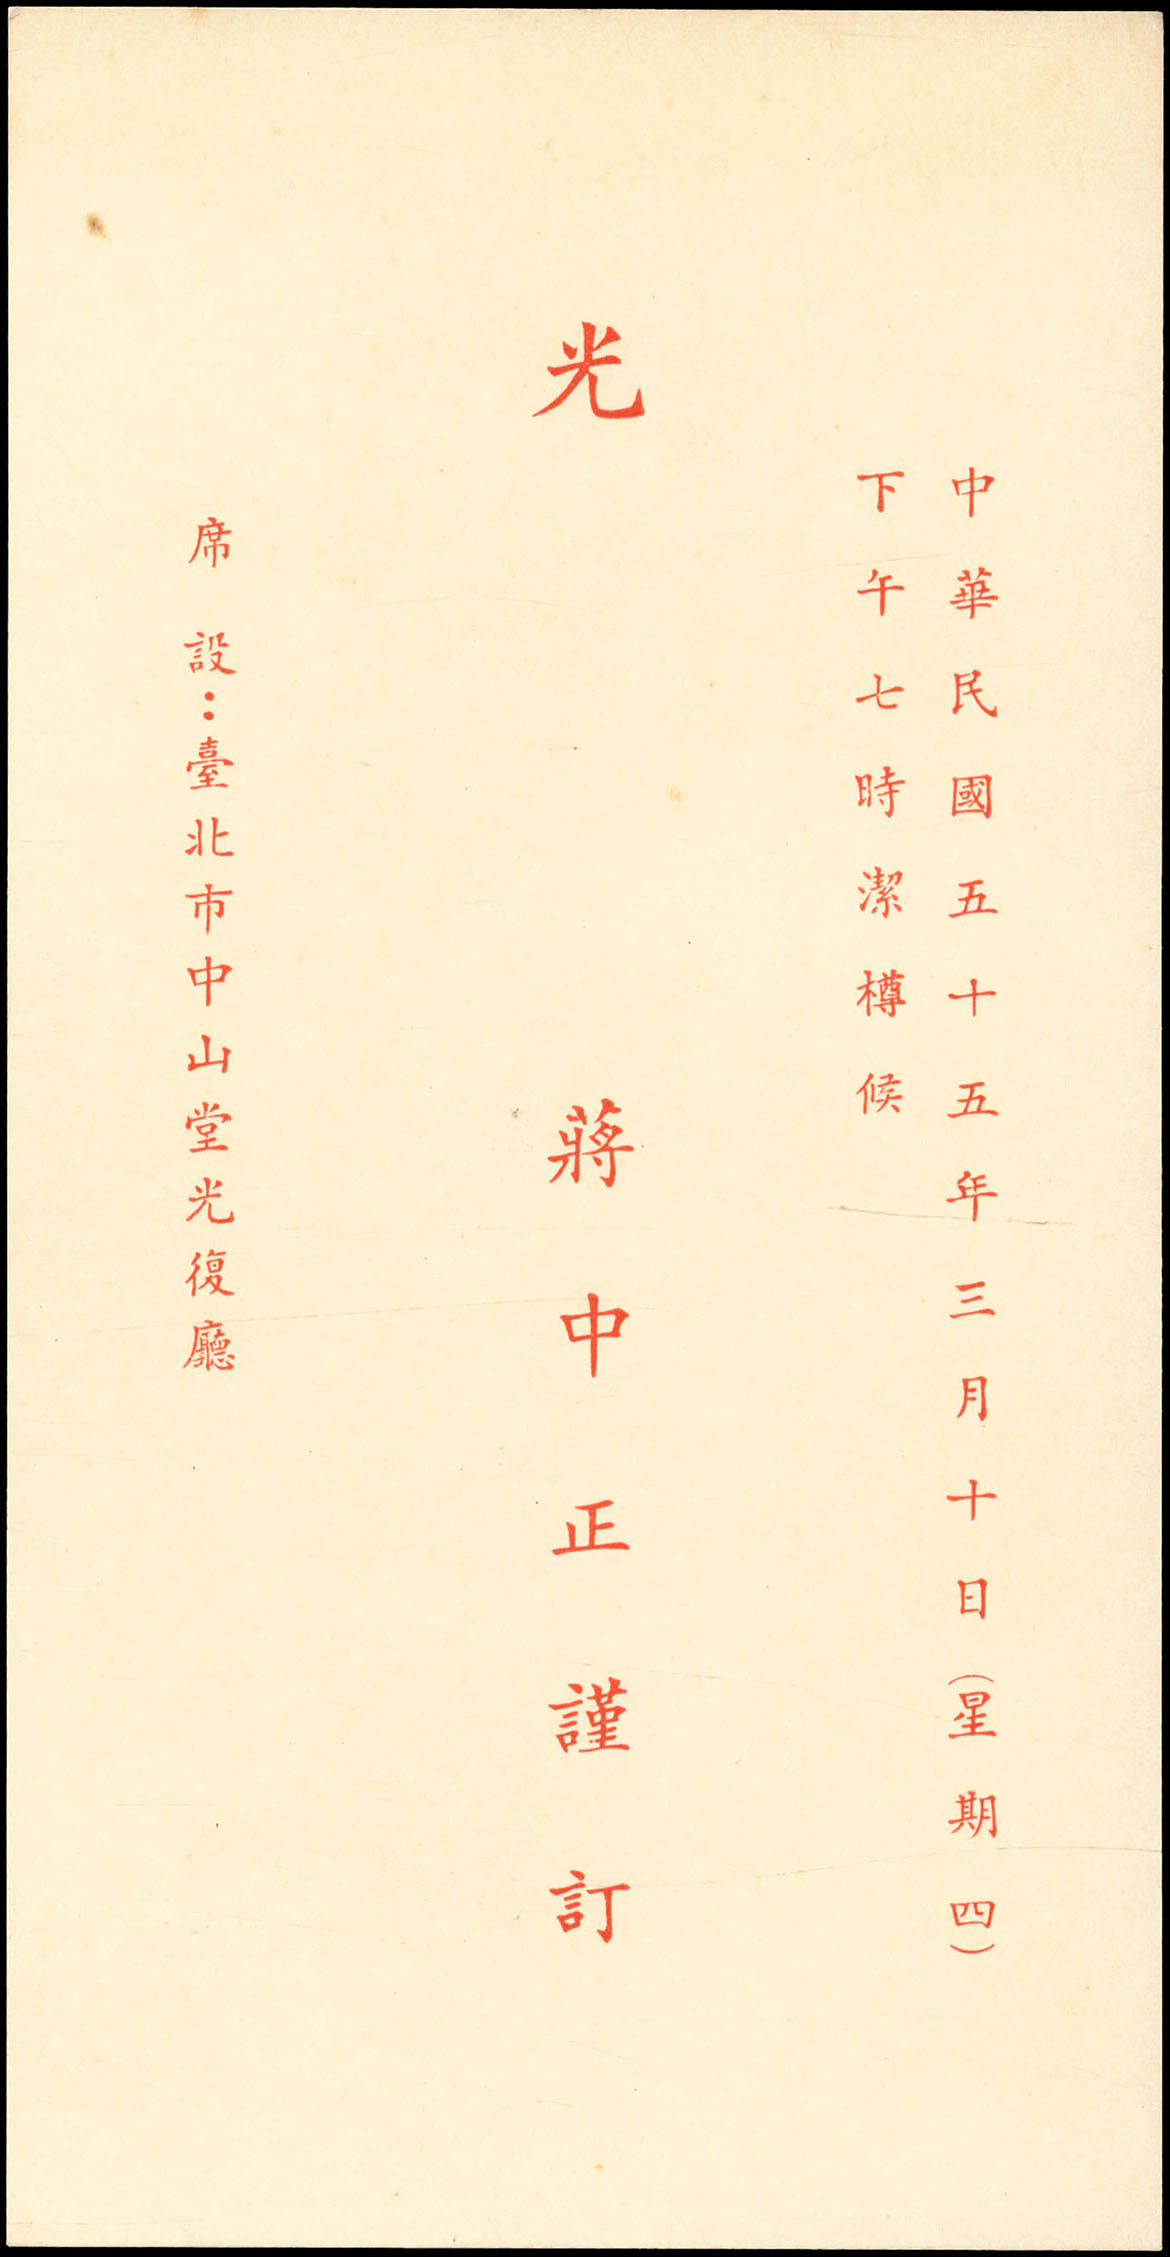 中華民國五十五年三月十日(星期四)
下午七時潔樽候
光
蔣中正謹訂
席設：臺北市中山堂光復廳